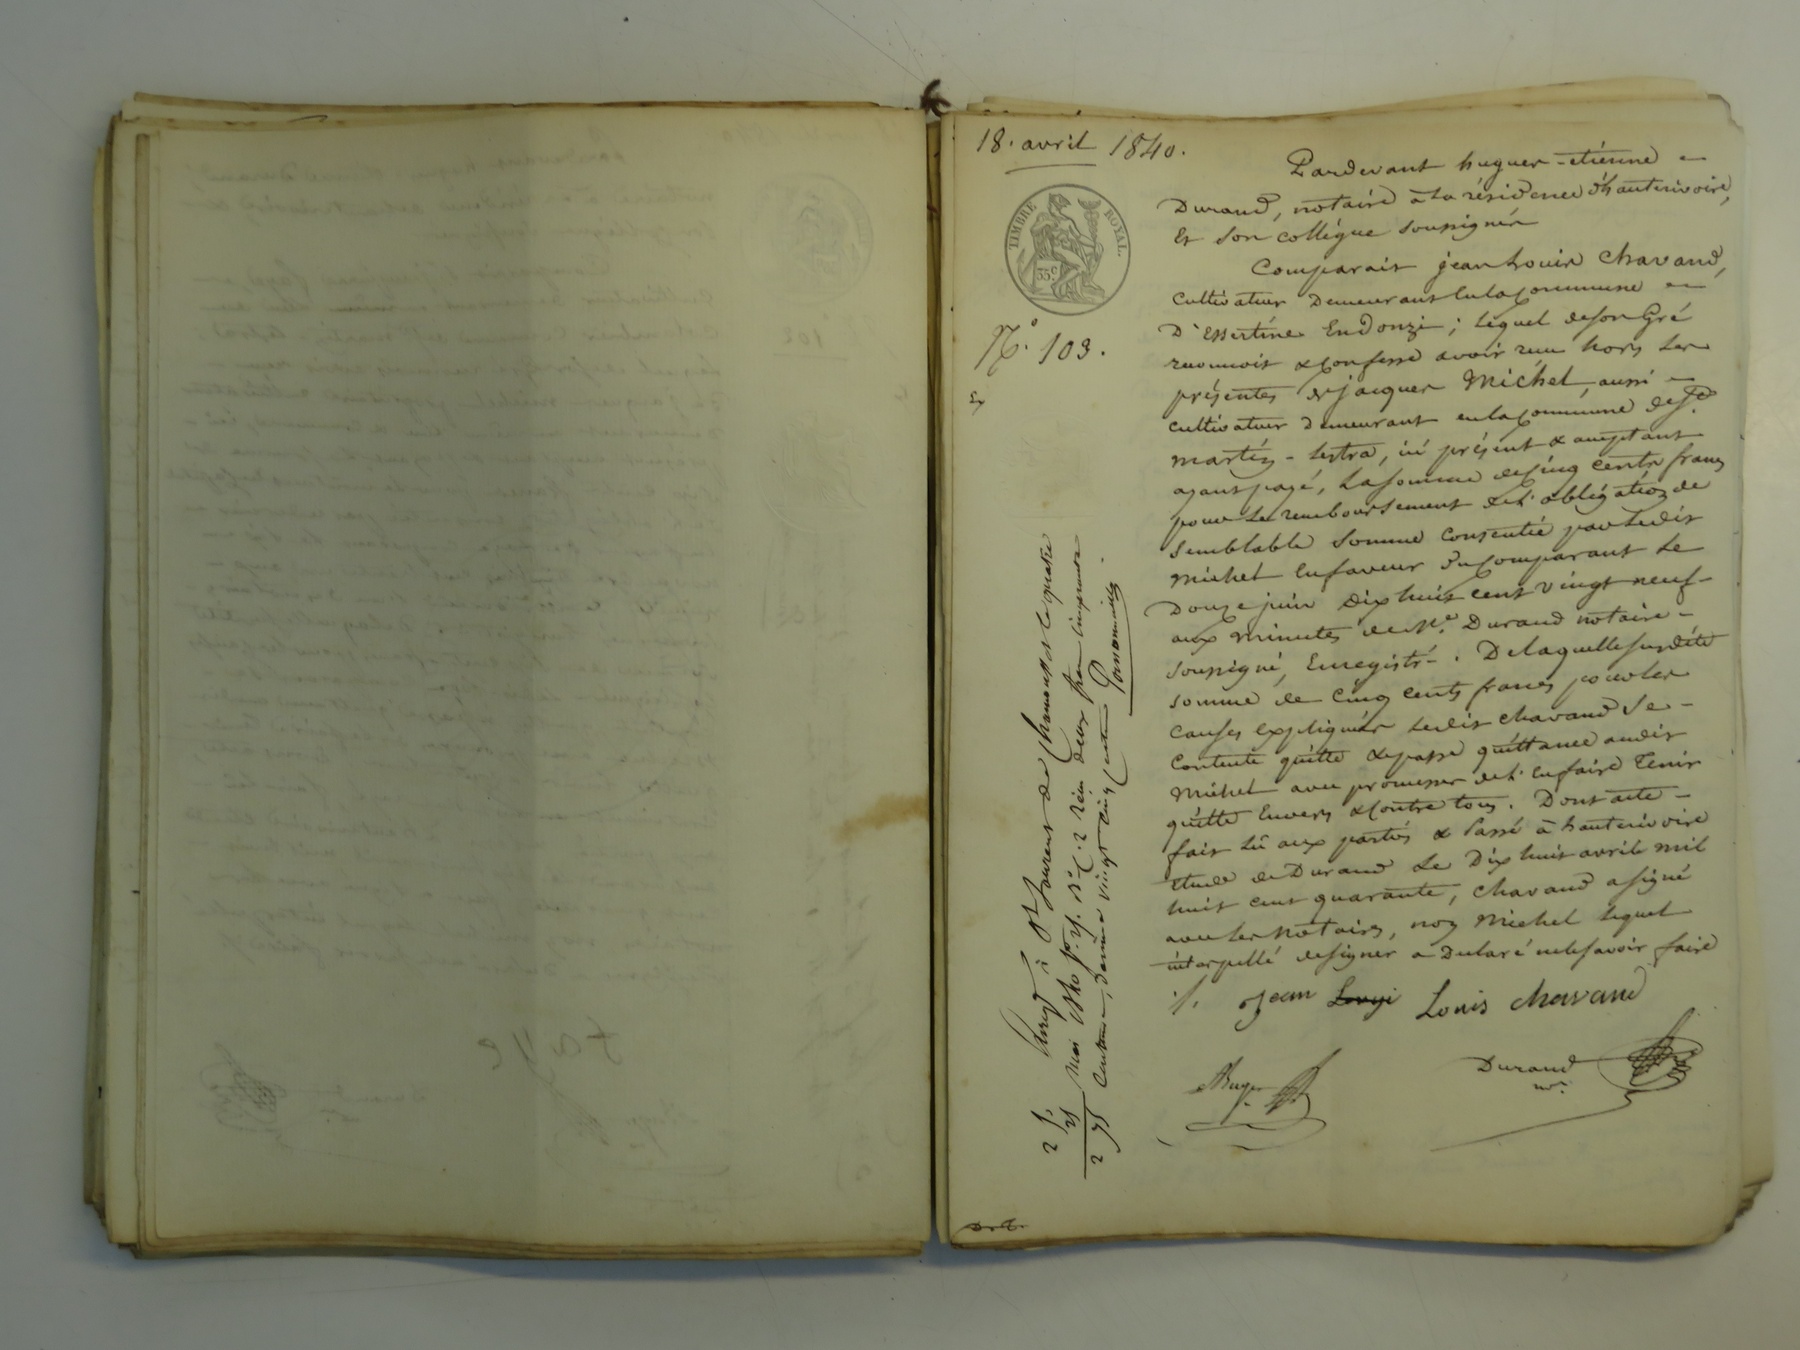 18. avril 1840.
TIMBRE ROYAL.
35c
No. 103.
Pardevant hugues-etiénne
Durand, notairé à la résidence d'hauterivoire,
et son collégue soussignés
Comparait jean Louis Chavand,
cultivateur demeurant en la Commune
D'Essertine En Donzi; lequel de son Gré
reconnoit & Confesse avoir reçu hors les
présentes de jacques Michel, aussi
cultivateur demeurant en la Commune de St.
martin-lestra, ici présent & acceptant
ayant payé, la somme de cinq cents francs
pour le remboursement de l'obligation de
semblable somme Consentie par Ledit
Michel En faveur du Comparant Le
Douze juin dix huit cent vingt neuf
aux minutes de Me. Durand notaire
soussigné, Enregistré. De laquelle susdite
somme de Cinq cents francs pour les
causes Expliquées Ledit Chavand se
Contente quitte & passe quittance audit
Michel avec promesse de l'en faire tenir
quitte Envers & Contre tous. Dont acte
fait Lû aux partiés & Passé à hauterivoire
Etude de Durand Le Dix huit avril mil
huit cent quarante, Chavand a signé
avec les notaires, non Michel lequel
interpellé de signer a Déclaré ne le savoir faire
./. Jean Louis Chavand
Durand
nre.
Enregt. à St Laurent de Chamousset le quatre
Mai 1840 fo. 2 reçu deux francs
centimes, dixième vingt cinq centimes
2 f.
25
2 25
faye